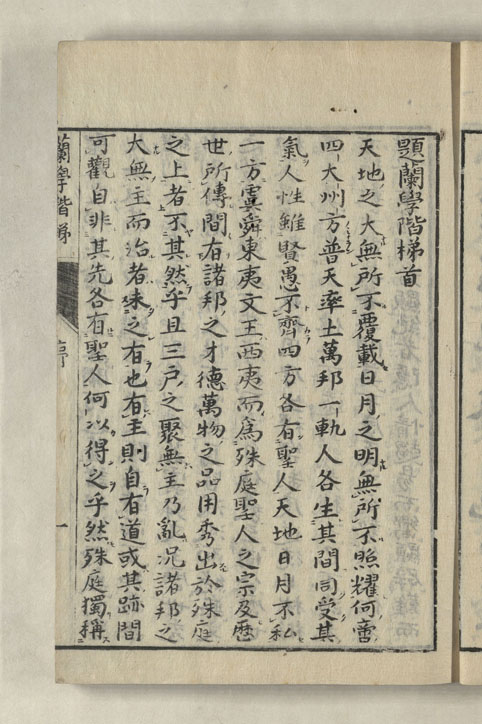 題蘭學階梯首
天地之大無所不覆載日月之明無所不照耀何啻
四大州方普天率土萬邦一軌人各生其間同受其
氣人性雖賢愚不齊四方各有聖人天地日月不私
一方虞舜東夷文王西夷而爲殊庭聖人之宗及歷
世所傳間有諸邦之才德萬物之品用秀出於殊庭
之上者不其然乎且三戸之聚無主乃亂況諸邦之
大無主而治者未之有也有主則自有道或其跡間
可觀自非其先各有聖人何以得之乎然殊庭獨稱
蘭學階梯 序 一